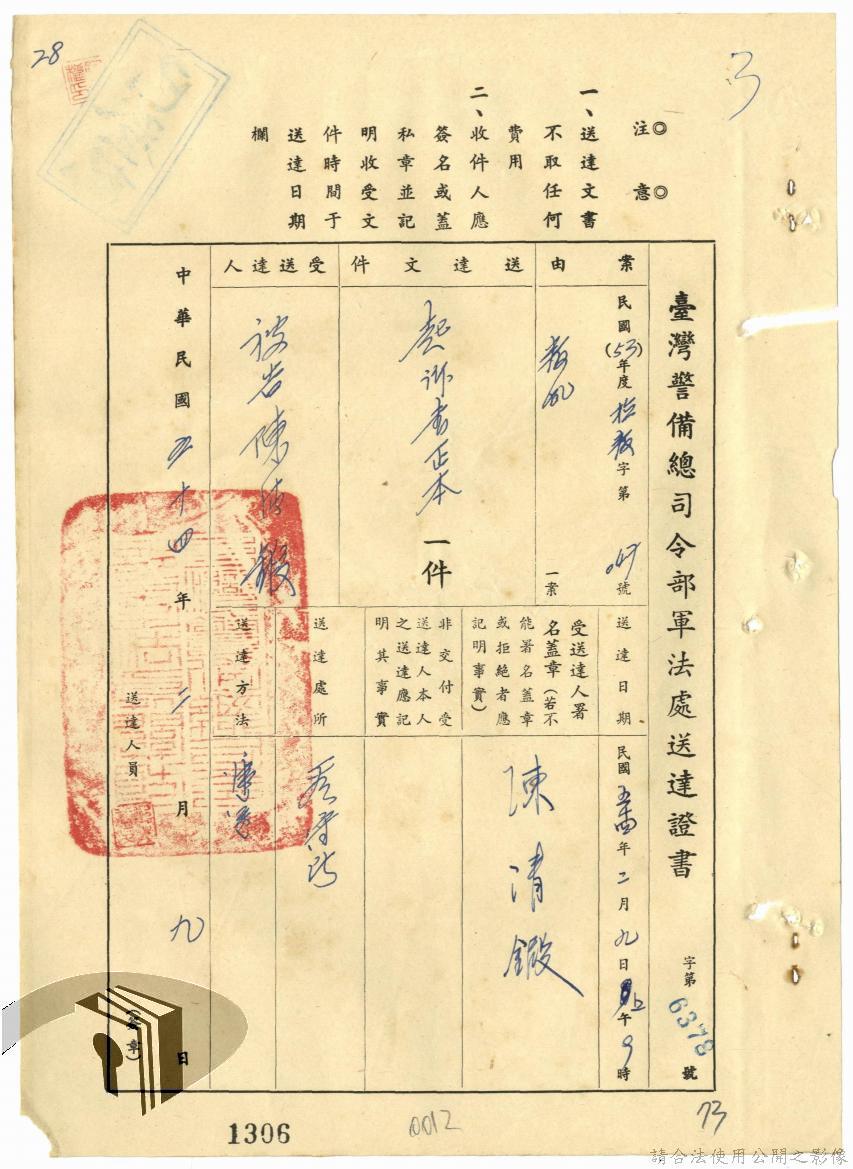 28
3
◎注意◎
一、送達文書
不取任何
費用
二、收件人應
簽名或蓋
私章並記
明收受文
件時間于
送達日期
欄
臺灣警備總司令部軍法處送達證書
字第6378號
案由
民國(53)年度
字第047號
叛亂
一案
送達文件
起訴書正本
一件
受送達人
被告陳清
送達日期
民國五四年二月九日上午9時
受送達人署
名蓋章(若不
能署名蓋章
或拒絕者應
記明事實)
陳清
非交付受
送達人本人
之送達應記
明其事實
送達處所
看守所
送達方法
中華民國五十四年二月九日
送達人員
(簽章)
73
1306
0012
請合法使用公開之影像